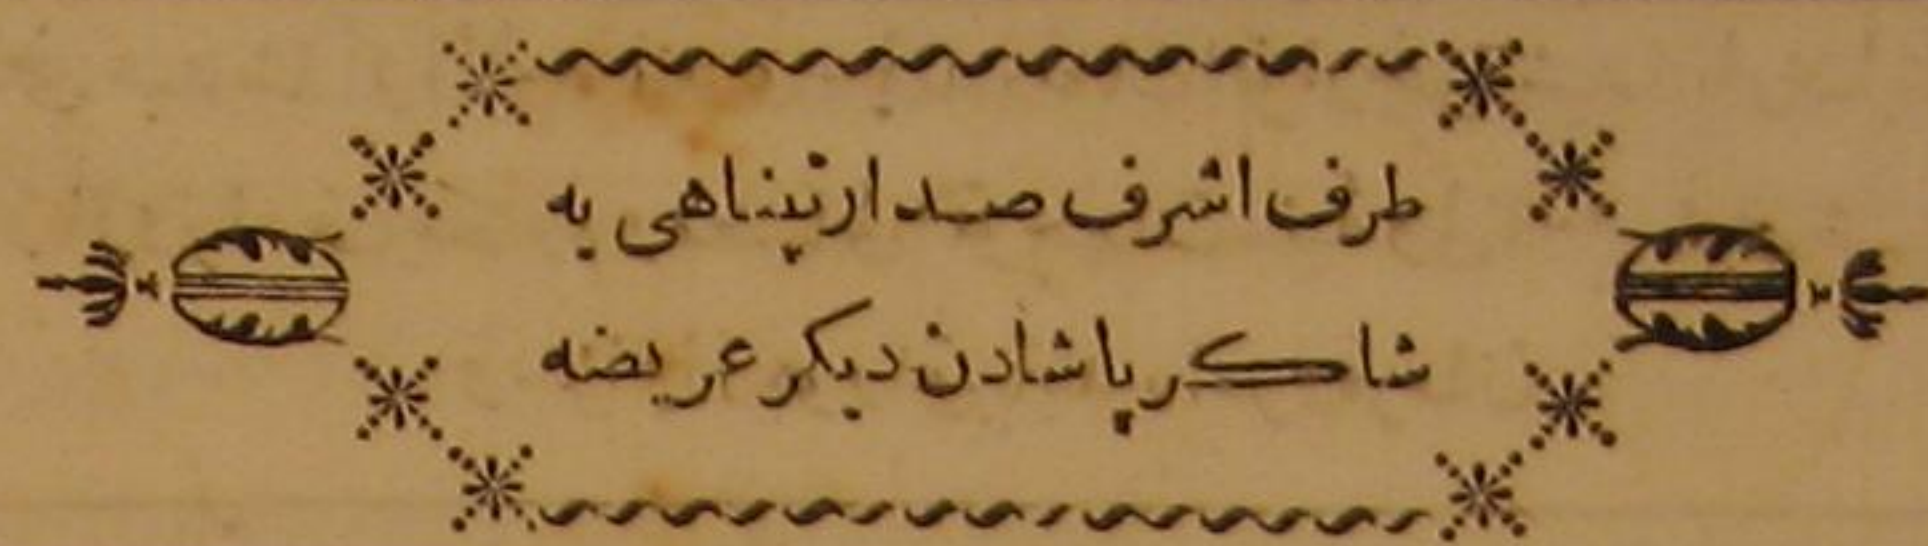 طرف اشرف صدارتپناهی به
شاکر پاشادن دیکر عریضه